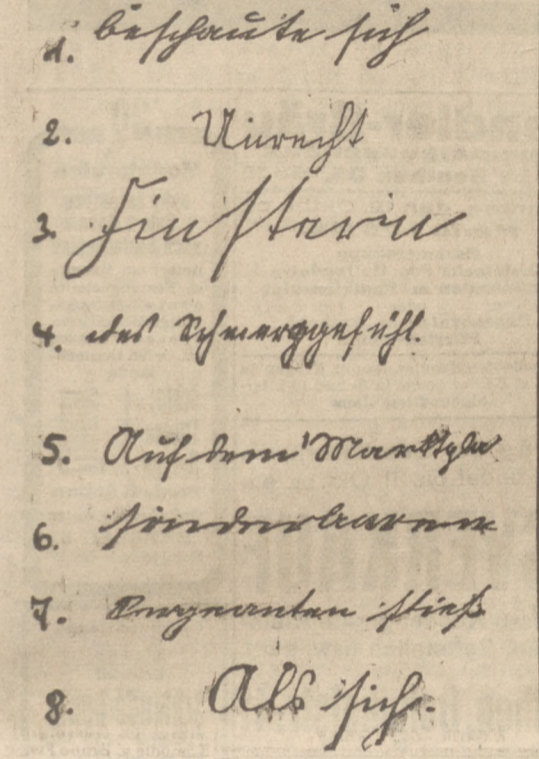 1. beschaute sich
2. Unrecht
3. Hinstern
4. des Schmerzgefühl.
5. Auf dem Marktpla
6. sonderbaren
7. Sergeanten stieß
8. Als sich